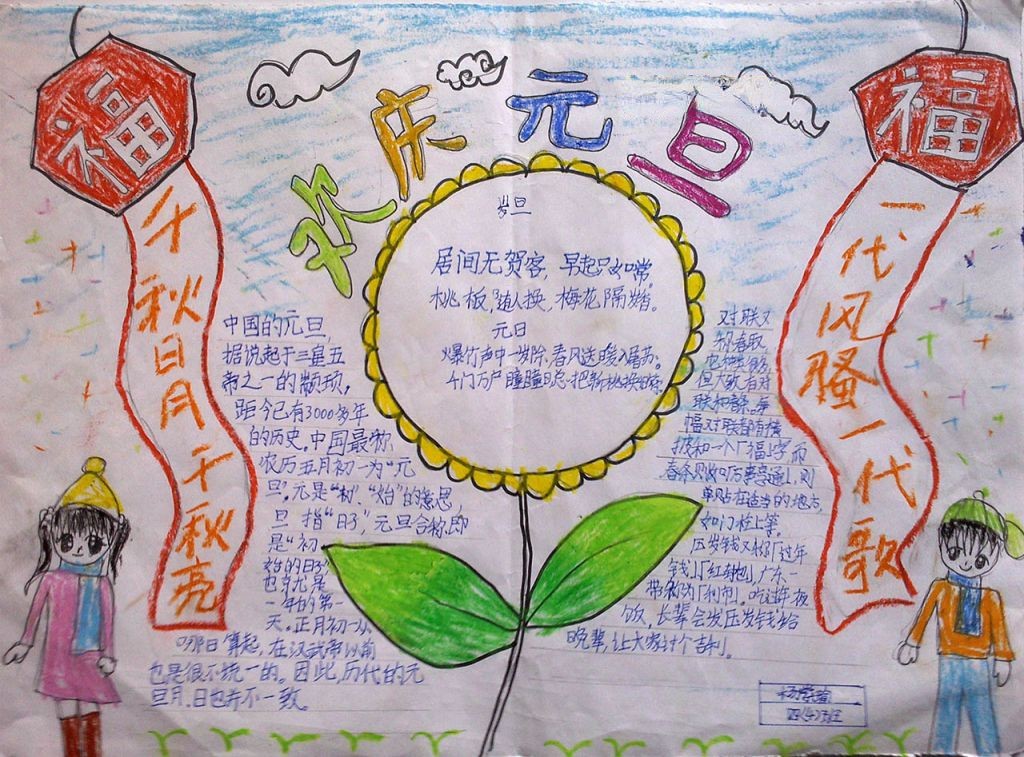 福
福
欢庆元旦
千秋日月千秋亮
一代风骚一代歌
岁旦
居间无贺客,早起只如常。
桃板随人换,梅花隔
元日
爆竹声中一岁除,春风送暖入屠苏。
千门万户曈曈日,总把新桃换旧符
中国的元旦,
据说起于三皇五
帝之一的颛顼,
距今已有3000多年
的历史。中国最称
农历五月初一为“元
旦”。元是“初”、“始”的意思,
旦 指“日子”元旦合称,即
是“初
始的日子”
也就是
一年的第一
天。正月初一从
哪日算起,在汉武帝以前
也是很不统一的。因此,历代的元
旦月、日也并不一致。
对联又
但大致有对
福对联都有横
披和一个「福」字而
春条只
单贴在适当的地方,
如门柱上等。
压岁钱又称「过年
钱」「红封包」,广东一
带称为「利市」。吃过年夜
饭,长辈会发压岁钱给
晚辈,让大家讨个吉利。
四(4)班